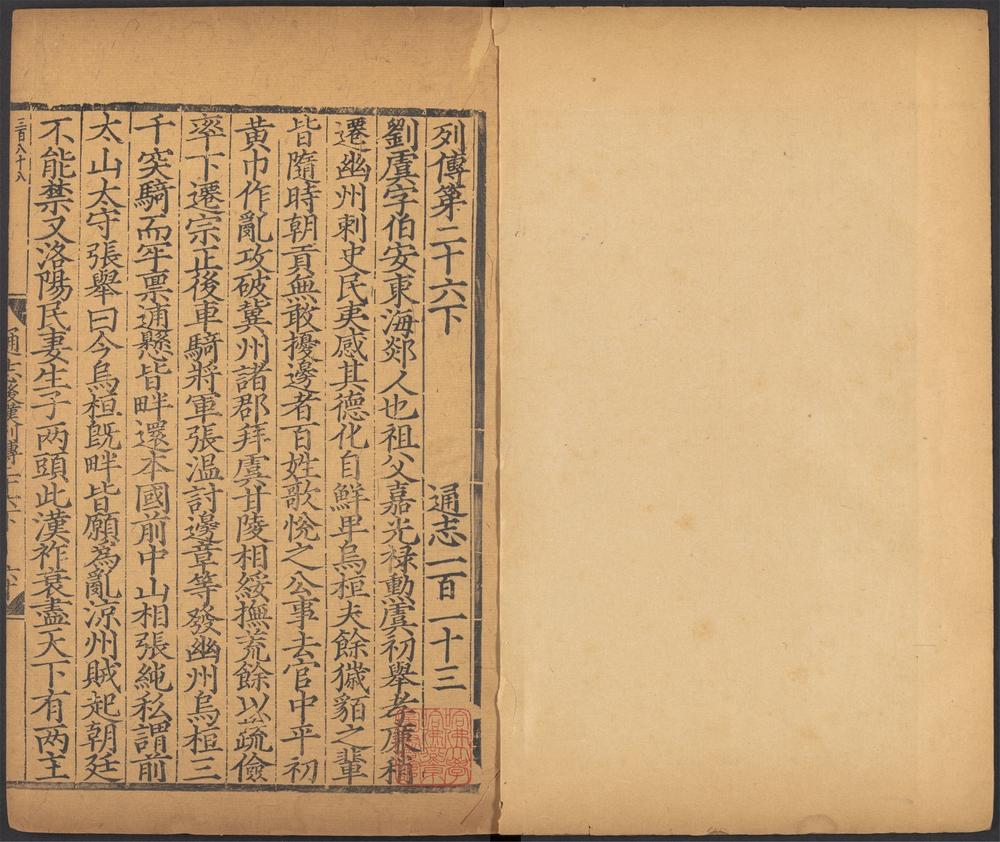 列傳第二十六下 通志一百一十三
劉虞字伯安東海郯人也祖父嘉光祿勳虞初舉孝廉稍
遷幽州刺史民夷感其德化自鮮卑烏桓夫餘獩貊之輩
皆隨時朝貢無敢擾邊者百姓歌恱之公事去官中平初
黃巾作亂攻破冀州諸郡拜虞甘陵相綏撫荒餘以蔬儉
率下遷宗正後車騎將軍張温討邊章等發幽州烏桓三
千突騎而牢禀逋懸皆畔還本國前中山相張純私謂前
太山太守張舉曰今烏桓旣畔皆願為亂涼州賊起朝廷
不能禁又洛陽民妻生子兩頭此漢祚衰盡天下有兩主
三百八十八